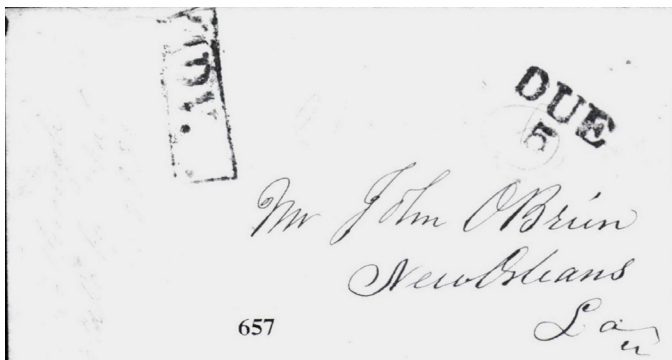 DUE
5
Mr John OBrien
New Orleans
Lou
657